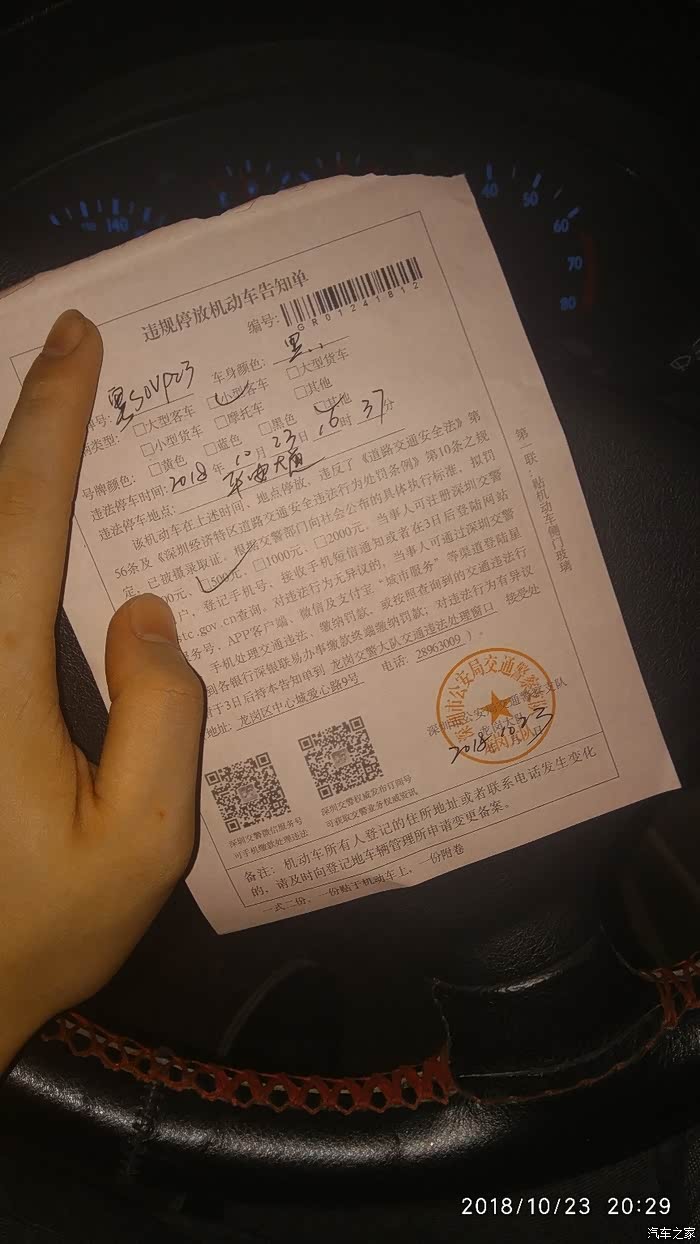 违规停放机动车告知单
编号:
GR01241812
牌号: 车身颜色: 黑
辆类型: □大型客车 □小型客车 □大型货车
□小型货车 □摩托车 □其他
号牌颜色: □黄色 □蓝色 □黑色 □其他
违法停车时间: 2018 年 10 月 23 日 16 时 37 分
违法停车地点:
该机动车在上述时间、地点停放,违反了《道路交通安全法》第
56条及《深圳经济特区道路交通安全违法行为处罚条例》第10条之规
定,已被摄录取证。根据交警部门向社会公布的具体执行标准,拟罚
00元、□500元、□1000元、□2000元。当事人可注册深圳交警
户,登记手机号、接收手机短信通知或者在3日后登陆网站
stc.gov.cn查询。对违法行为无异议的,当事人可通过深圳交警
务号,APP客户端、微信及支付宝“城市服务”等渠道登陆星
手机处理交通违法、缴纳罚款,或按照查询到的交通违法行
到各银行深银联易办事缴款终端缴纳罚款;对违法行为有异议
于3日后持本告知单到 龙岗交警大队交通违法处理窗口 接受处
地址: 龙岗区中心城爱心路9号 电话: 28963009 )
深圳市公安局交通警察支队
2018 10 23日
深圳交警微信服务号
可手机缴款处理违法
深圳交警权威发布订阅号
可获取交警业务权威资讯
备注: 机动车所有人登记的住所地址或者联系电话发生变化
的,请及时向登记地车辆管理所申请变更备案。
一式二份,一份贴于机动车上,一份附卷
第
联:贴机动车侧门玻璃
40
50
60
70
80
140
2018/10/23 20:29
汽车之家